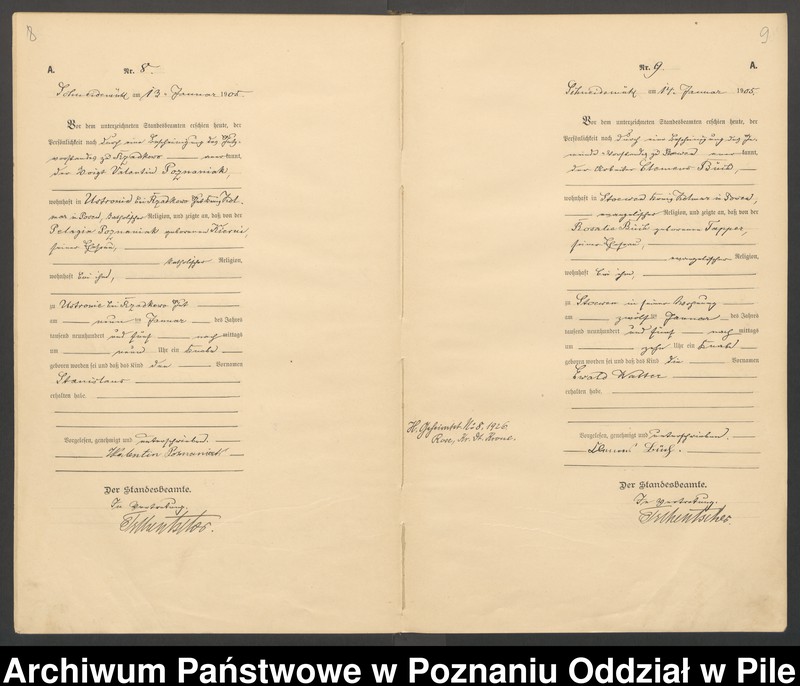 8
A.
Nr. 8.
Schneidemühl am 13. Januar 1905.
Vor dem unterzeichneten Standesbeamten erschien heute, der
Persönlichkeit nach durch eine Bescheinigung des Guts-
vorstandes zu Rzadkowo kannt,
der Voigt Valentin Poznaniak,
wohnhaft in Ustronie bei Rzadkowo Kol-
mar in Posen, katholischer Religion, und zeigte an, daß von der
Pelagia Poznaniak geborenen
seiner Ehefrau,
katholischer Religion,
wohnhaft bei ihm,
zu Ustronie bei Rzadkowo Gut
am neun ten Januar des Jahres
tausend neunhundert und fünf nach mittags
um neun Uhr ein Knabe
geboren worden sei und daß das Kind den Vornamen
Stanislaus
erhalten habe.
Vorgelesen, genehmigt und unterschrieben.
Walentin Poznaniak
Der Standesbeamte.
In Vertretung.
9
Nr. 9.
A.
Schneidemühl am 14. Januar 1905.
Vor dem unterzeichneten Standesbeamten erschien heute, der
Persönlichkeit nach durch eine Bescheinigung des Ge-
meinde-Vorstandes zu Stoewen kannt,
der Arbeiter Clemens
wohnhaft in Stoewen Kreis Kolmar in Posen,
evangelischer Religion, und zeigte an, daß von der
Rosalie geborene Tapper,
seiner Ehefrau,
evangelischer Religion,
wohnhaft bei ihm,
zu Stoewen in seiner Wohnung
am zwölf ten Januar des Jahres
tausend neunhundert und fünf nach mittags
um zehn Uhr ein Knabe
geboren worden sei und daß das Kind die Vornamen
Ewald Walter
erhalten habe.
H. Geheiratet Nr. 8. 1926
Rose, Kr. Dt. Krone.
Vorgelesen, genehmigt und unterschrieben.
Der Standesbeamte.
In Vertretung.
Archiwum Państwowe w Poznaniu Oddział w Pile